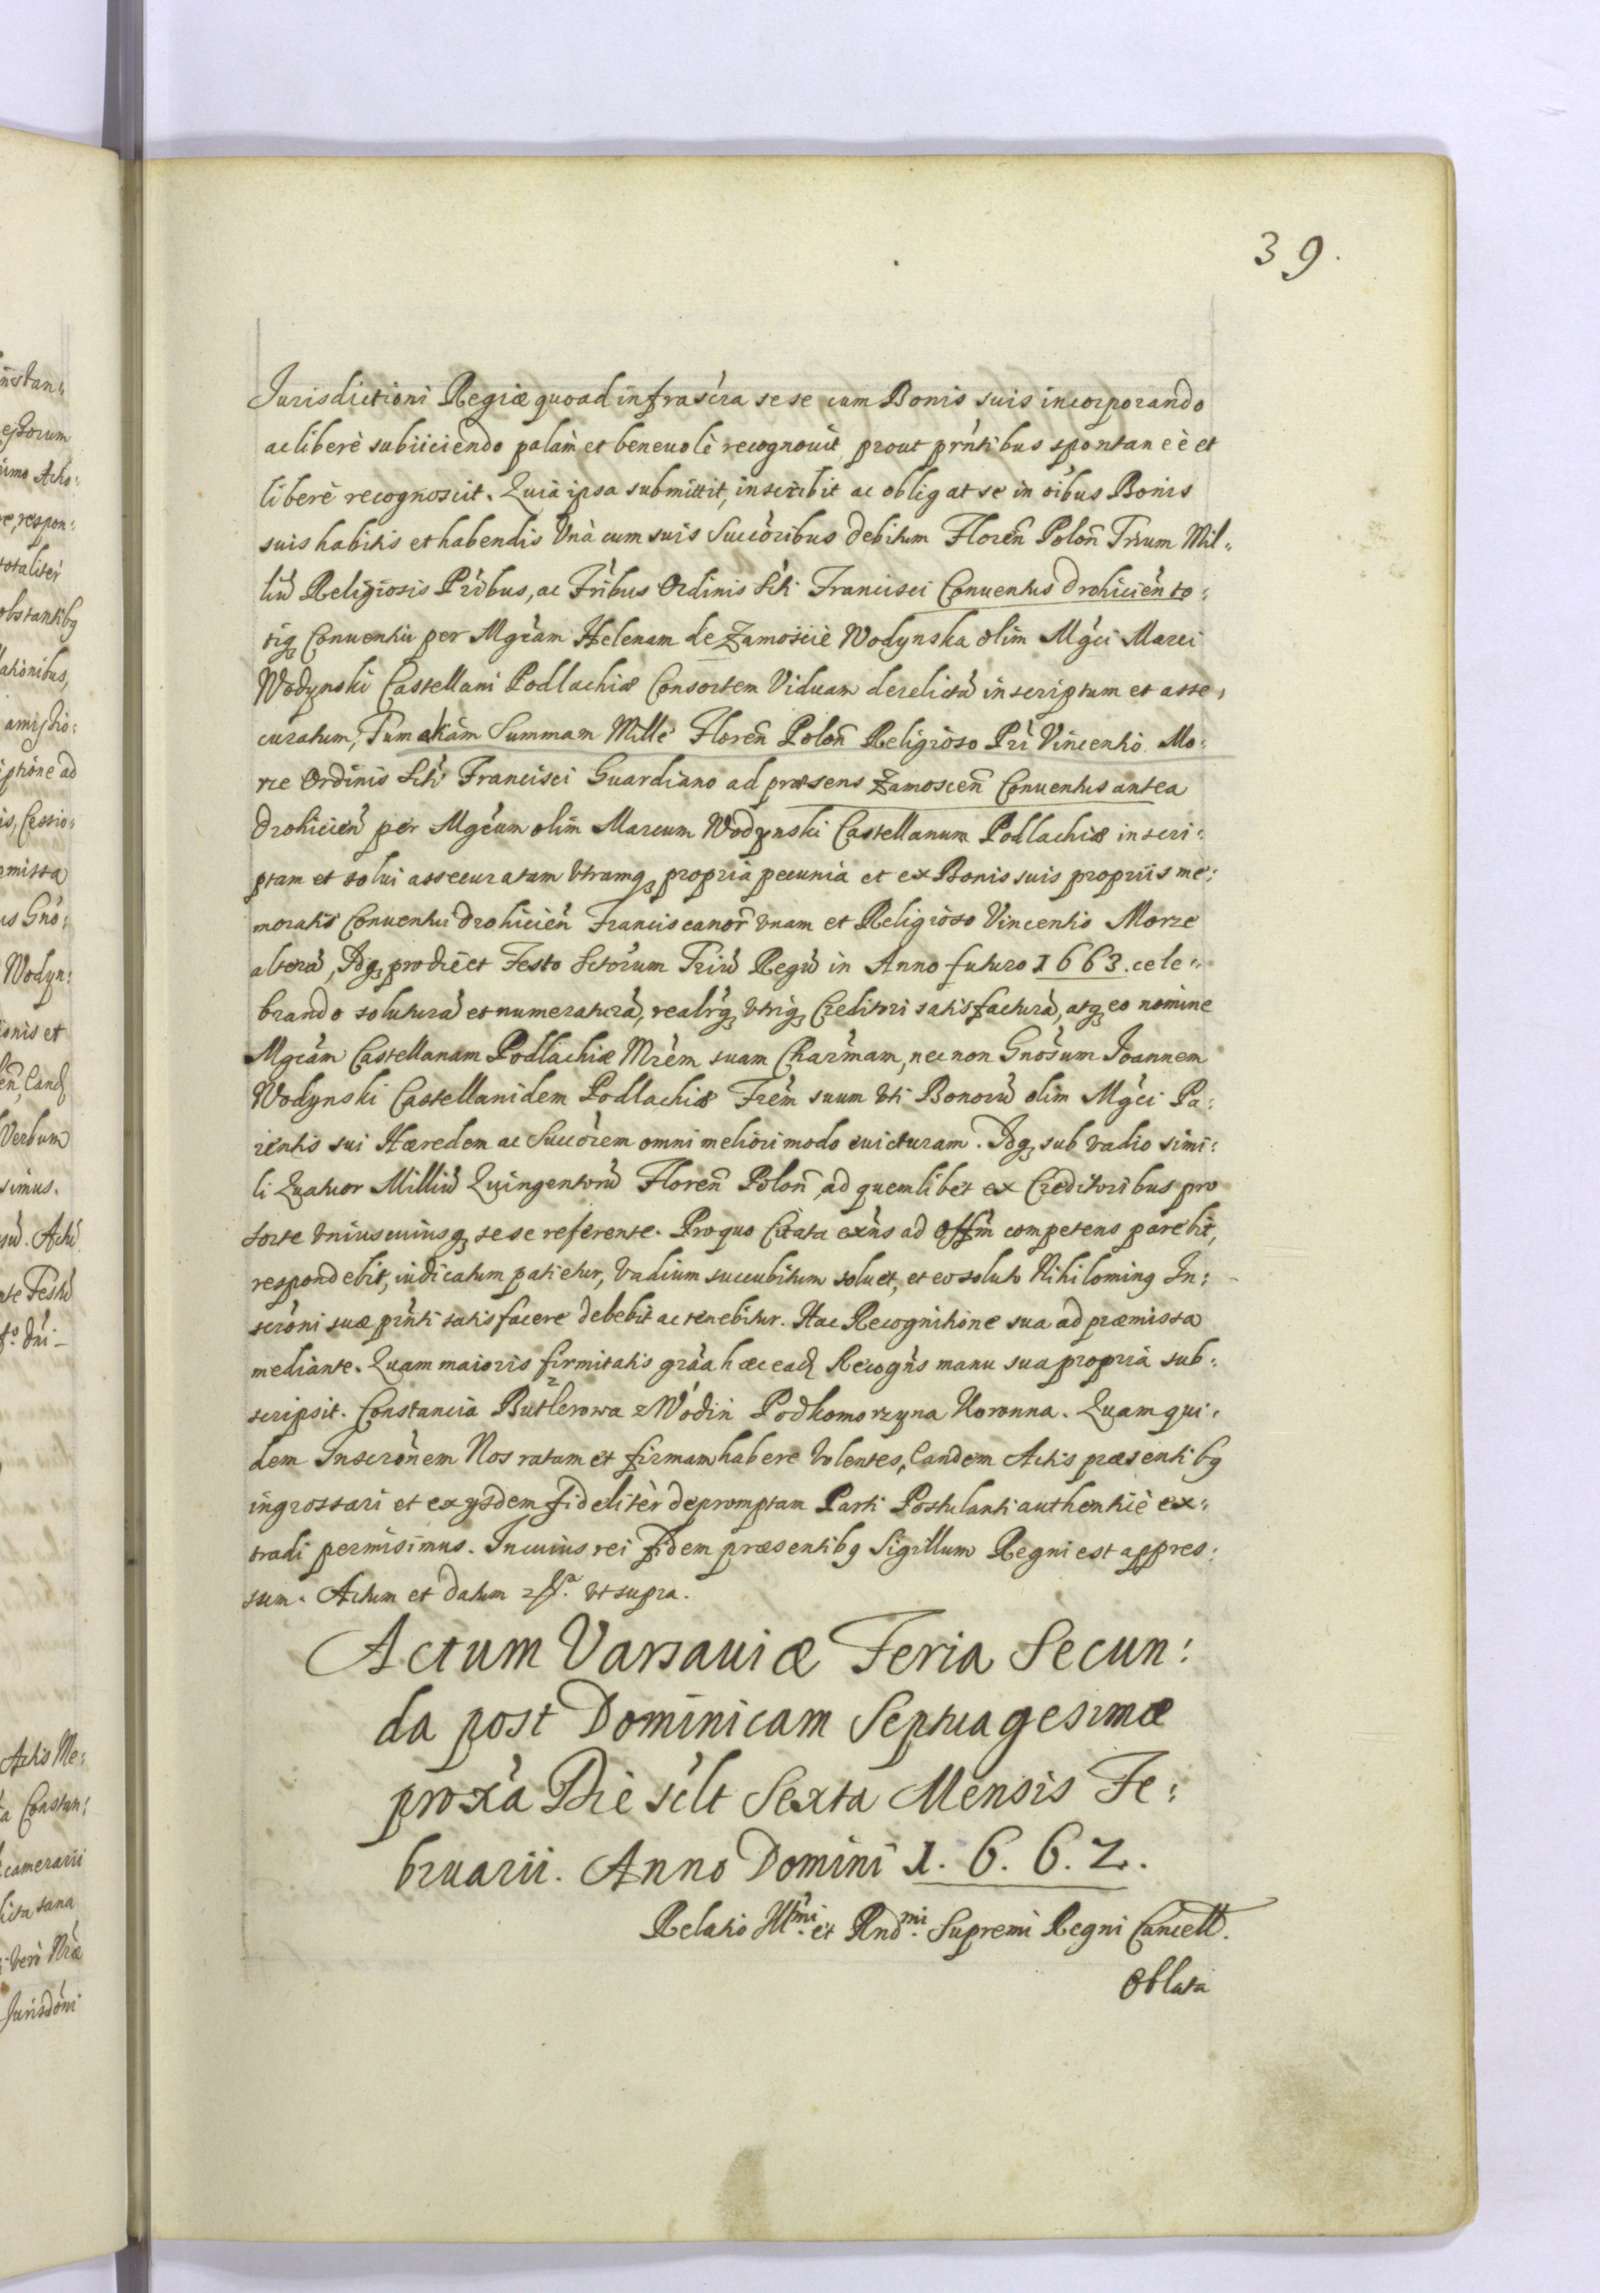 39.
Jurisdictioni Regiæ quoad infrascra sese cum Bonis suis incorporando
ac liberè subiiciendo palàm et beneuolè recognouit, prout prńtibus spontaneè et
liberè recognoscit. Quia ipsa submittit, inscribit ac obligat se in oibus Bonis
suis habitis et habendis Vnà cum suis Succoribus debitum Floreñ Poloñ Trium Mil„
liũ Religiosis Pribus, ac Fribus Ordinis Scti Francisci Conuentus Drohicień to„
tiq Conuentui per Mgcam Helenam de Zamoscie Wodynska olim Mgci Marci
Wodynski Castellani Podlachiæ Consortem Viduam derelictã inscriptum et asse„
curatum, Tum etiam Summam Mille Floreñ Poloñ Religioso Pri Vincentio Mo„
rze Ordinis Scti Francisci Guardiano ad præsens Zamosceñ Conuentus antea
Drohicień per Mgcum olim Marcum Wodynski Castellanum Podlachiæ inscri„
ptam et solui assecuratam Vtramq propria pecunia et ex Bonis suis propriis me„
moratis Conuentui Drohicień Franciscanor vnam et Religioso Vincentio Morze
alterã, Idq pro die et Festo Sctorum Triũ Regũ in Anno futuro 1663. cele„
brando soluturã et numeraturã, realrq vtriq Creditori satisfacturã, atq eo nomine
Mgcam Castellanam Podlachiæ Mrem suam Charmam, nec non Gnosum Joannem
Wodynski Castellanidem Podlachiæ Frem suum vti Bonorũ olim Mgci Pa„
rentis sui Hæredem ac Succorem omni meliori modo euicturam. Idq sub vadio simi„
li Quatuor Milliũ Quingentorũ Floreñ Poloñ, ad quemlibet ex Creditoribus pro
sorte vniuscuiusq sese referente. Pro quo Citata exńs ad Offm competens parebit,
respondebit, iudicatum patietur, Vadium succubitum soluet, et eo soluto Nihilominq In„
scroni suæ prńti satisfacere debebit ac tenebitur. Hac Recognitione sua ad præmissa
mediante. Quam maioris firmitatis graa hæc eadq Recogńs manu sua propria sub„
scripsit. Constancia Butlerowa z Wodiń Podkomorzyna Koronna. Quam qui„
dem Inscronem Nos ratam et firmam habere Volentes, Eandem Actis præsentibq
ingrossari et ex ysdem fidelitèr depromptam Parti Postulanti authenticè ex„
tradi permisimus. In cuius rei fidem præsentibq Sigillum Regni est appres„
sum. Actum et datum vt supra.
Actum Varsauiæ Feria Secun:
da post Dominicam Septuagesimæ
proxa Die sclt Sexta Mensis Fe:
bruarii. Anno Domini 1.6.6.2.
Relatio Illmi et Rndmi Supremi Regni Cancell.
Oblata